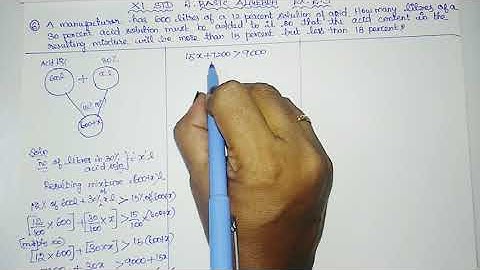 XI STD 2. BASIC ALGEBRA EX-2.3
⑥ A manufacturer has 600 litres of a 12 percent solution of acid. How many litres of a
30 percent acid solution must be added to it so that the acid content in the
resulting mixture will be more than 15 percent but less than 18 percent?
Acid 12% 30%
600l + x l
15% 18%
600+x
Soln
no of litres in 30%
acid soln } = x l
Resulting mixture = 600+x l
12% of 600l + 30% of x l > 15% (600+x)
[12/100 × 600] + [30/100 × x] > 15/100 (600+x)
[multiply 100]
+ [30×x] > 15 (600+x)
30x > 9000 + 15x
15x + 7200 > 9000